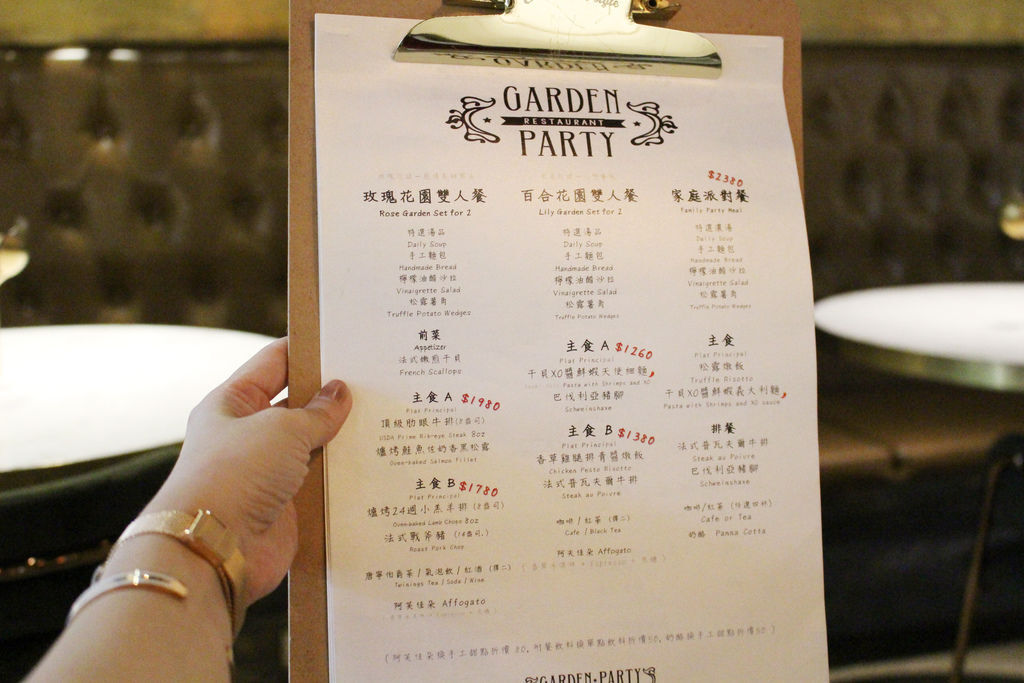 GARDEN
RESTAURANT
PARTY
玫瑰花園雙人餐
Rose Garden Set for 2
特選湯品
Daily Soup
手工麵包
Handmade Bread
檸檬油醋沙拉
Vinaigrette Salad
松露薯角
Truffle Potato Wedges
前菜
Appetizer
法式嫩煎干貝
French Scallops
主食 A $1980
Plat Principal
頂級肋眼牛排(8盎司)
USDA Prime Rib-eye Steak 8oz
爐烤鮭魚佐奶香黑松露
Oven-baked Salmon Fillet
主食 B $1780
Plat Principal
爐烤24週小羔羊排(8盎司)
Oven-baked Lamb Chops 8oz
法式戰斧豬 (14盎司)
Roast Pork Chop
唐寧伯爵茶/氣泡飲/紅酒 (擇二)
Twinings Tea / Soda / Wine
阿芙佳朵 Affogato
百合花園雙人餐
Lily Garden Set for 2
特選湯品
Daily Soup
手工麵包
Handmade Bread
檸檬油醋沙拉
Vinaigrette Salad
松露薯角
Truffle Potato Wedges
主食 A $1260
Plat Principal
干貝XO醬鮮蝦天使細麵
Pasta with Shrimps and XO
巴伐利亞豬腳
Schweinshaxe
主食 B $1380
Plat Principal
香草雞腿排青醬燉飯
Chicken Pesto Risotto
法式普瓦夫爾牛排
Steak au Poivre
咖啡/紅茶 (擇二)
Cafe / Black Tea
阿芙佳朵 Affogato
$2380
家庭派對餐
Family Party Meal
特選濃湯
Daily Soup
手工麵包
Handmade Bread
檸檬油醋沙拉
Vinaigrette Salad
松露薯角
Truffle Potato Wedges
主食
Plat Principal
松露燉飯
Truffle Risotto
干貝XO醬鮮蝦義大利麵
Pasta with Shrimps and XO sauce
排餐
法式普瓦夫爾牛排
Steak au Poivre
巴伐利亞豬腳
Schweinshaxe
咖啡/紅茶 (任選四杯)
Cafe or Tea
奶酪 Panna Cotta
(阿芙佳朵換手工甜點折價 80, 附餐飲料換單點飲料折價50, 奶酪換手工甜點折價50)
GARDEN • PARTY